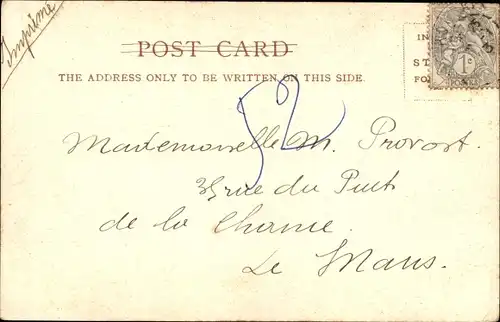 Imprimé
POST CARD
THE ADDRESS ONLY TO BE WRITTEN ON THIS SIDE.
IN
ST
FO
1c
52
Mademoiselle M. Provost.
rue du Puit
de la Chaine
Le Mans.